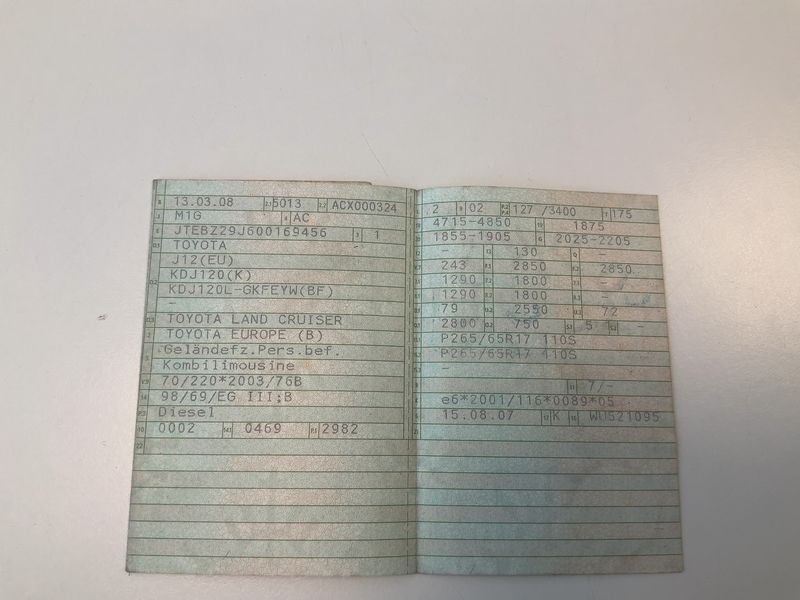 13.03.08 5013 ACX000324
M1G AC
JTEBZ29J600169456 1
TOYOTA
J12(EU)
KDJ120(K)
KDJ120L-GKFEYW(BF)
-
TOYOTA LAND CRUISER
TOYOTA EUROPE (B)
Geländefz.Pers.bef.
Kombilimousine
70/220*2003/76B
98/69/EG III;B
Diesel
0002 0469 2982
2 02 127 /3400 175
4715-4850 1875
1855-1905 2025-2205
- 130 -
243 2850 2850
1290 1800 -
1290 1800 -
79 2550 72
2800 750 5 -
P265/65R17 110S
P265/65R17 110S
-
7/-
e6*2001/116*0089*05
15.08.07 K WU521095